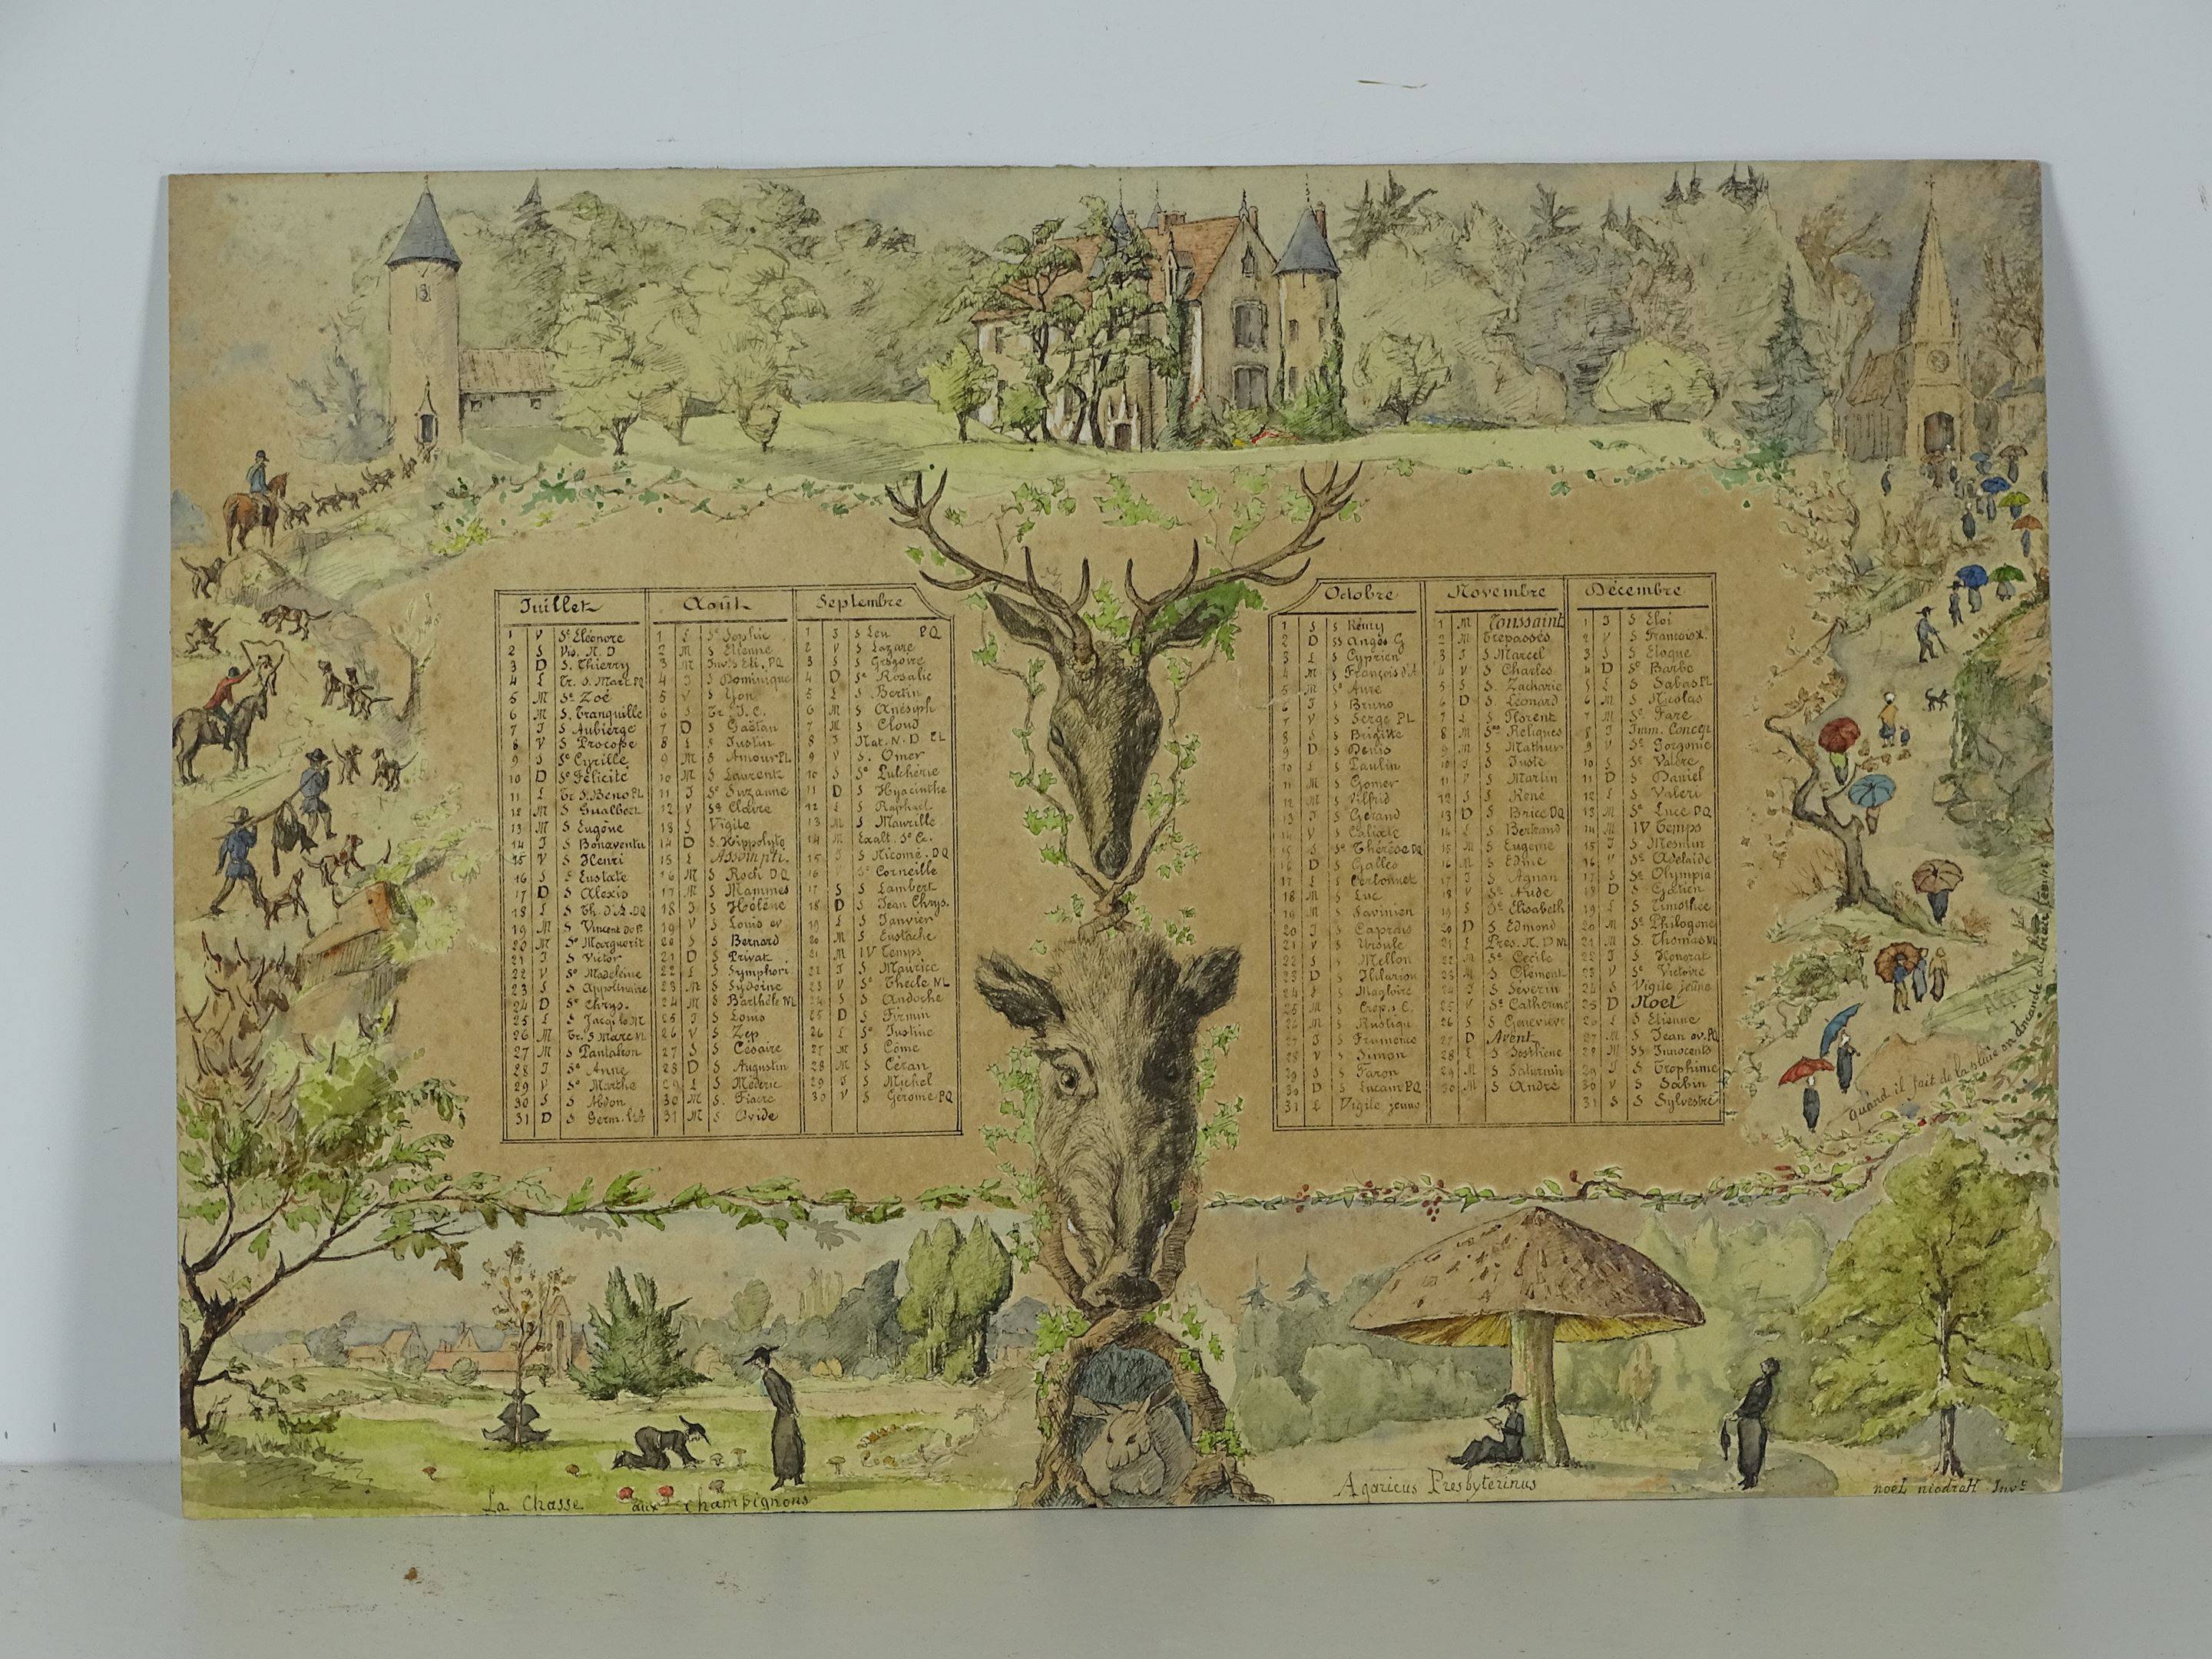 Juillet
1 V Ste Eléonore
2 S Vis. N. D
3 D S. Thierry
4 L Tr. S. Mart. PQ
5 M Se Zoé
6 M S. Tranquille
7 J S Aubierge
8 V S Procope
9 S Se Cyrille
10 D Se Félicité
11 L Tr S. Beno PL
12 M S Gualbert
13 M S Eugène
14 J S Bonaventu
15 V S Henri
16 S S Eustate
17 D S Alexis
18 L S Th. d'A. DQ
19 M S Vincent de P.
20 M Se Marguerit
21 J S Victor
22 V Se Madeleine
23 S S Appolinaire
24 D Se Chrys.
25 L S Jacq. le M
26 M Tr. S Marc NL
27 M S Pantalron
28 J Se Anne
29 V Se Marthe
30 S S Abdon
31 D S Germ. l'A
Août
1 L Se Sophie
2 M S Etienne
3 M Inv. S Eti. PQ
4 J S Dominique
5 V S Yon
6 S Tr J. C.
7 D S Gaëtan
8 L S Justin
9 M S Amour PL
10 M S Laurent
11 J Se Suzanne
12 V Se Claire
13 S Vigile
14 D S. Hippolyte
15 L Assompti.
16 M S Roch DQ
17 M S Mammes
18 J S Hélène
19 V S Louis ev
20 S S Bernard
21 D S Privat
22 L S Symphori
23 M S Sydoine
24 M S Barthéle NL
25 J S Louis
26 V S Zep
27 S S Césaire
28 D S Augustin
29 L S Médéric
30 M S. Fiacre
31 M S Ovide
Septembre
1 J S Leu PQ
2 V S Lazare
3 S S Grégoire
4 D Se Rosalie
5 L S Bertin
6 M S Onésiph
7 M S Cloud
8 J Nat. N. D PL
9 V S. Omer
10 S Se Pulchérie
11 D S Hyacinthe
12 L S Raphael
13 M S Maurille
14 M Exalt. Se C.
15 J S Nicomé. DQ
16 V S Corneille
17 S S Lambert
18 D S Jean Chrys.
19 L S Janvier
20 M S Eustache
21 M IV Temps
22 J S Maurice
23 V Se Thecle NL
24 S S Andoche
25 D S Firmin
26 L Se Justine
27 M S Côme
28 M S Céran
29 J S Michel
30 V S Gerome PQ
Octobre
1 S S Rémy
2 D SS Anges G
3 L S Cyprien
4 M S François d'A
5 M Se Aure
6 J S Bruno
7 V S Serge PL
8 S S Brigitte
9 D S Denis
10 L S Paulin
11 M S Gomer
12 M S Vilfrid
13 J S Gérand
14 V S Calixte
15 S Se Thérèse DQ
16 D S Galles
17 L S Cerbonnet
18 M S Luc
19 M S Savinien
20 J S Caprais
21 V S Ursule
22 S S Mellon
23 D S Hilarion
24 L S Magloire
25 M S Crep. s C.
26 M S Rustiqu
27 J S Frumence
28 V S Simon
29 S S Faron
30 D S Lucain PQ
31 L Vigile jeune
Novembre
1 M Toussaint
2 M Trepassés
3 J S Marcel
4 V S Charles
5 S S Zacharie
6 D S Léonard
7 L S Florent
8 M Stes Reliques
9 M S Mathur
10 J S Juste
11 V S Martin
12 S S René
13 D S Brice DQ
14 L S Bertrand
15 M S Eugène
16 M S Edme
17 J S Agnan
18 V Se Aude
19 S Se Elisabeth
20 D S Edmond
21 L Prés. N. D NL
22 M Se Cécile
23 M S Clément
24 J S Severin
25 V Se Catherine
26 S S Geneviève
27 D Avent
28 L S Sosthène
29 M S Saturnin
30 M S André
Décembre
1 J S Eloi
2 V S François X.
3 S S Eloque
4 D Se Barbe
5 L S Sabas PL
6 M S Nicolas
7 M Se Fare
8 J Imm. Concep
9 V Se Gorgonie
10 S Se Valère
11 D S Daniel
12 L S Valeri
13 M Se Luce DQ
14 M IV Temps
15 J S Mesmin
16 V Se Adelaide
17 S Se Olympia
18 D S Gatien
19 L S Timothée
20 M S Philogone
21 M S. Thomas NL
22 J S Honorat
23 V Se Victoire
24 S Vigile jeûne
25 D Noel
26 L S Etienne
27 M S Jean ev. PQ
28 M SS Innocents
29 J S Trophime
30 V S Sabin
31 S S Sylvestre
quand il fait de la pluie on
La Chasse aux Champignons
Agaricus Presbyterinus
noëL niodraH Inve